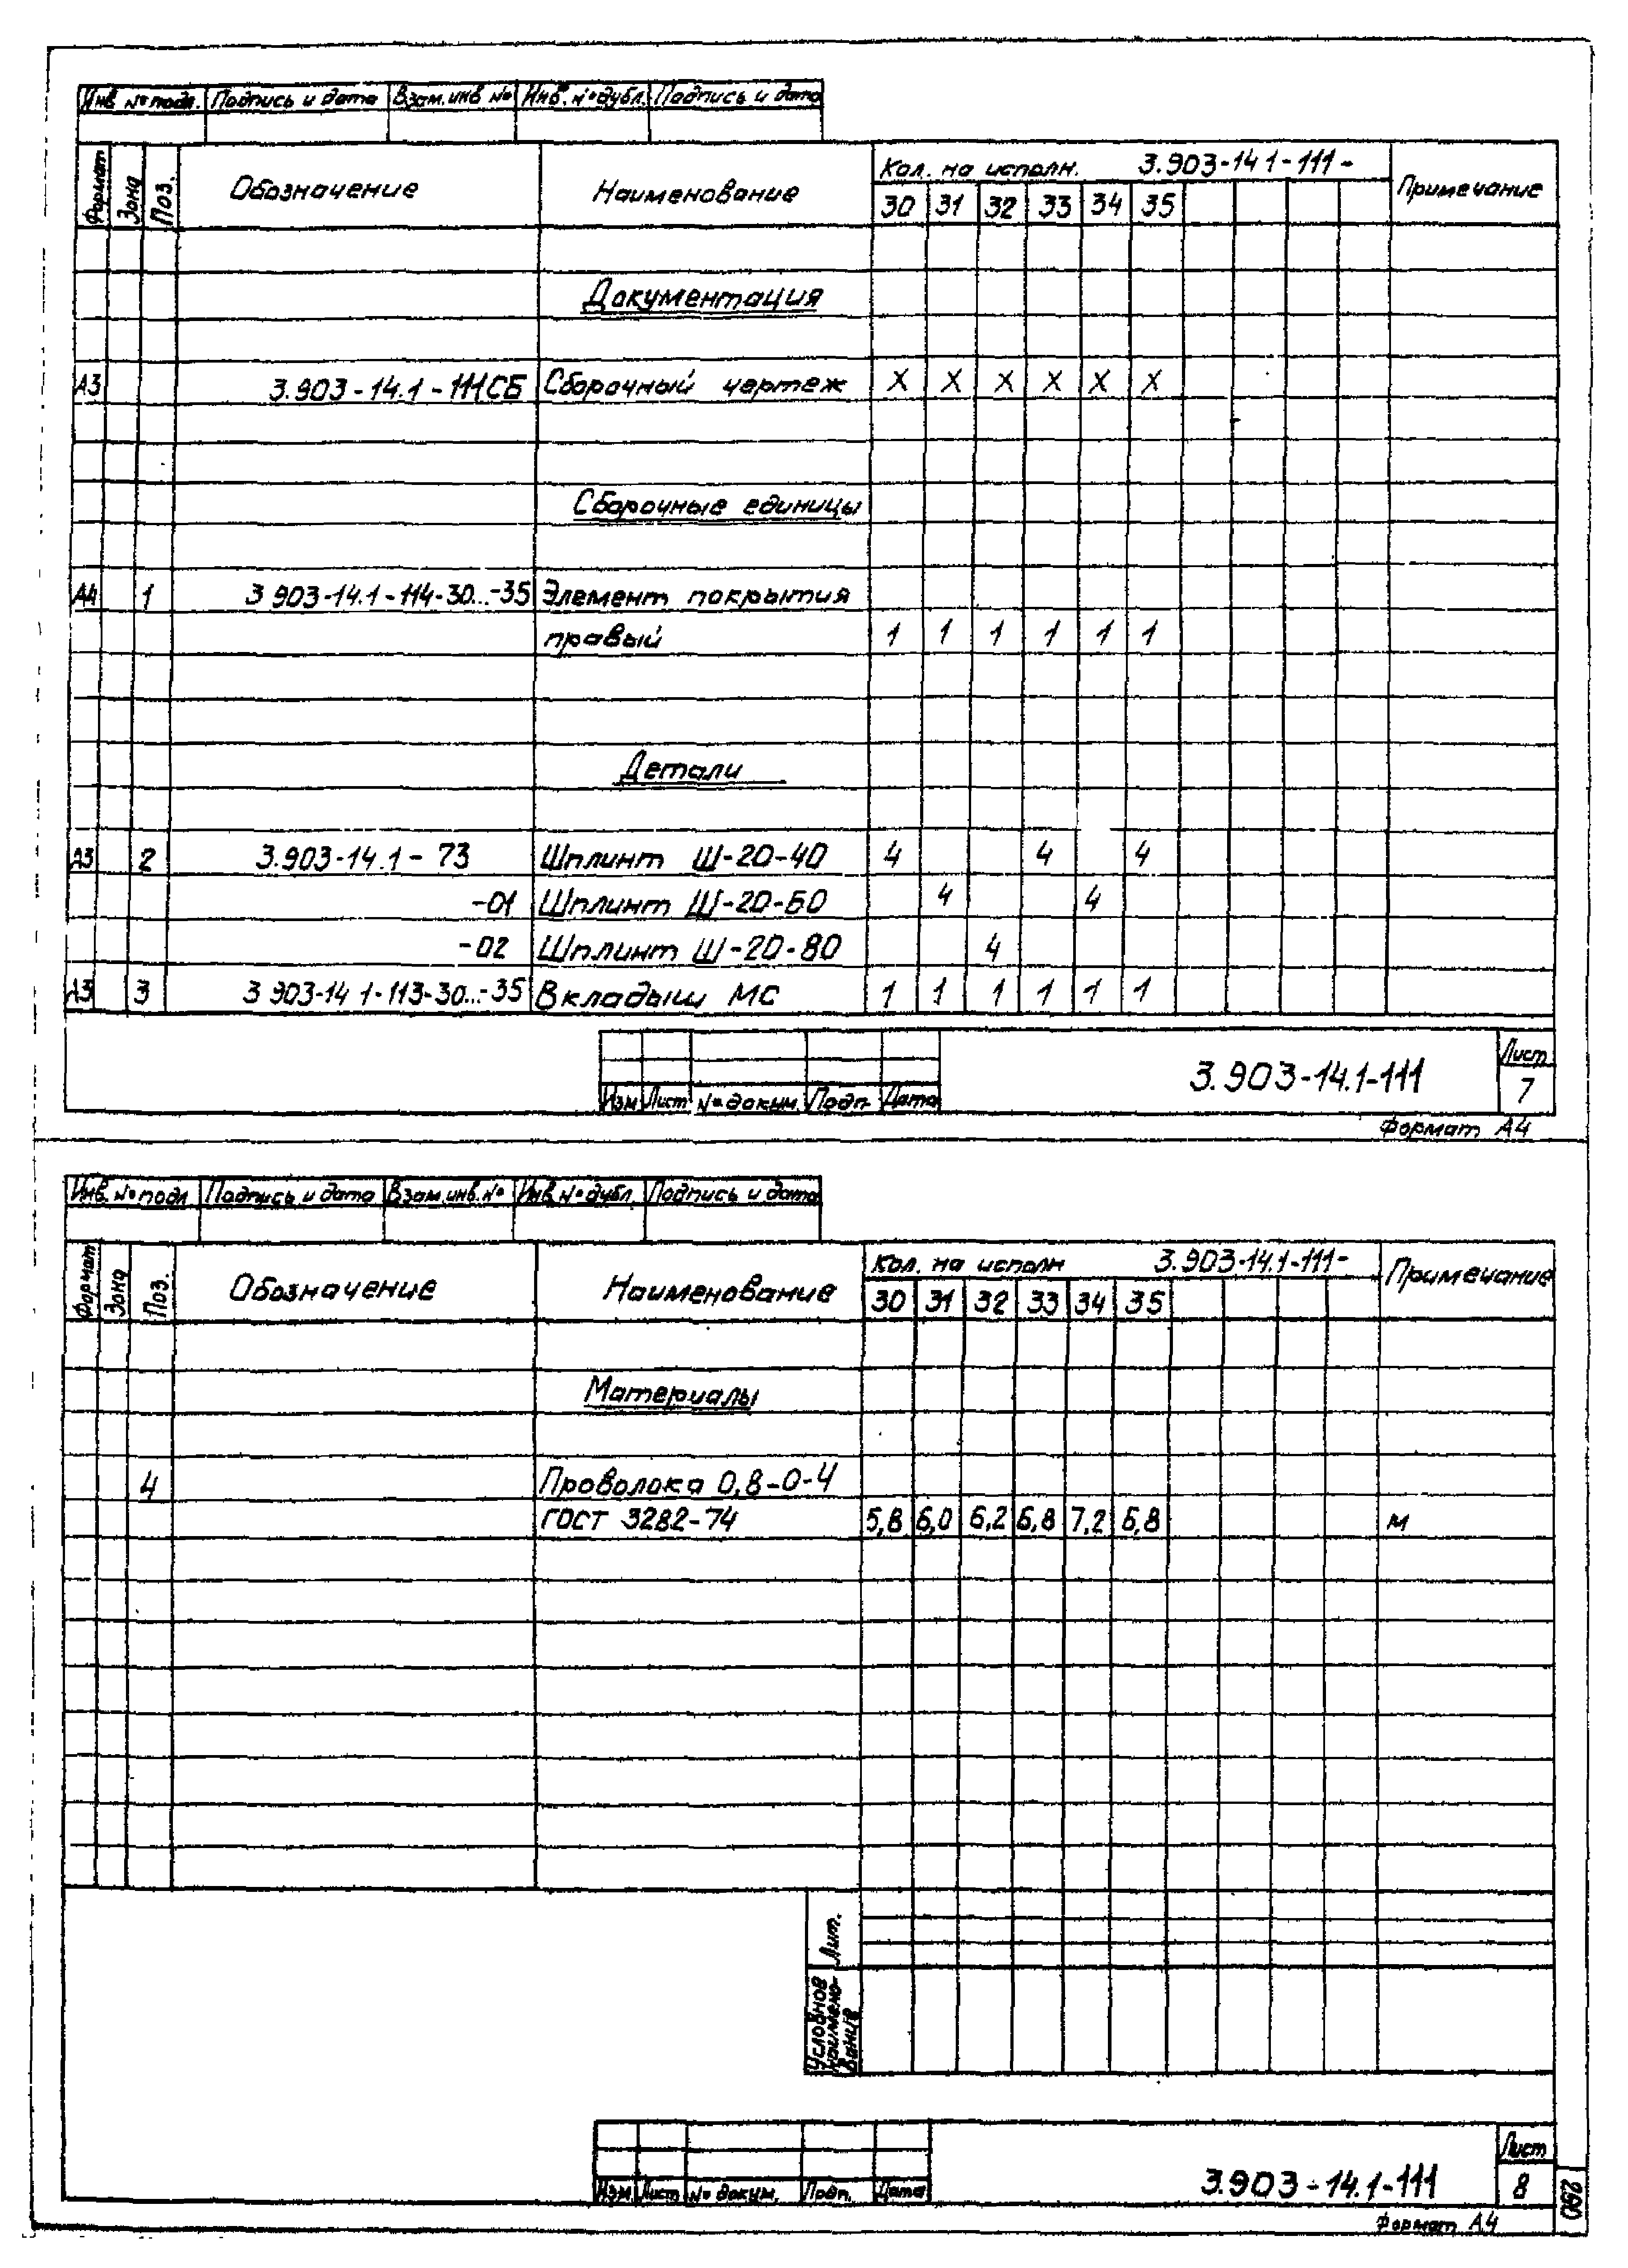 Инв № подл. Подпись и дата Взам. инв № Инв. № дубл. Подпись и дата
Формат Зона Поз. Обозначение Наименование Кол. на исполн. 3.903-14 1-111- Примечание
30 31 32 33 34 35
Документация
А3 3.903-14.1-111СБ Сборочный чертеж X X X X X X
Сборочные единицы
А4 1 3 903-14.1-114-30...-35 Элемент покрытия
правый 1 1 1 1 1 1
Детали
А3 2 3.903-14.1-73 Шплинт Ш-20-40 4 4 4
-01 Шплинт Ш-20-60 4 4
-02 Шплинт Ш-20-80 4
А3 3 3 903-14 1-113-30...-35 Вкладыш МС 1 1 1 1 1 1
Изм Лист № докум. Подп. Дата 3.903-14.1-111 Лист 7
Формат А4
Инв. № подл Подпись и дата Взам. инв. № Инв. № дубл. Подпись и дата
Формат Зона Поз. Обозначение Наименование Кол. на исполн 3.903-14.1-111- Примечание
30 31 32 33 34 35
Материалы
4 Проволока 0,8-0-4
ГОСТ 3282-74 5,8 6,0 6,2 6,8 7,2 6,8 м
Лит.
Условное
наимено-
вание
Изм Лист № докум. Подп. Дата 3.903-14.1-111 Лист 8
Формат А4
290